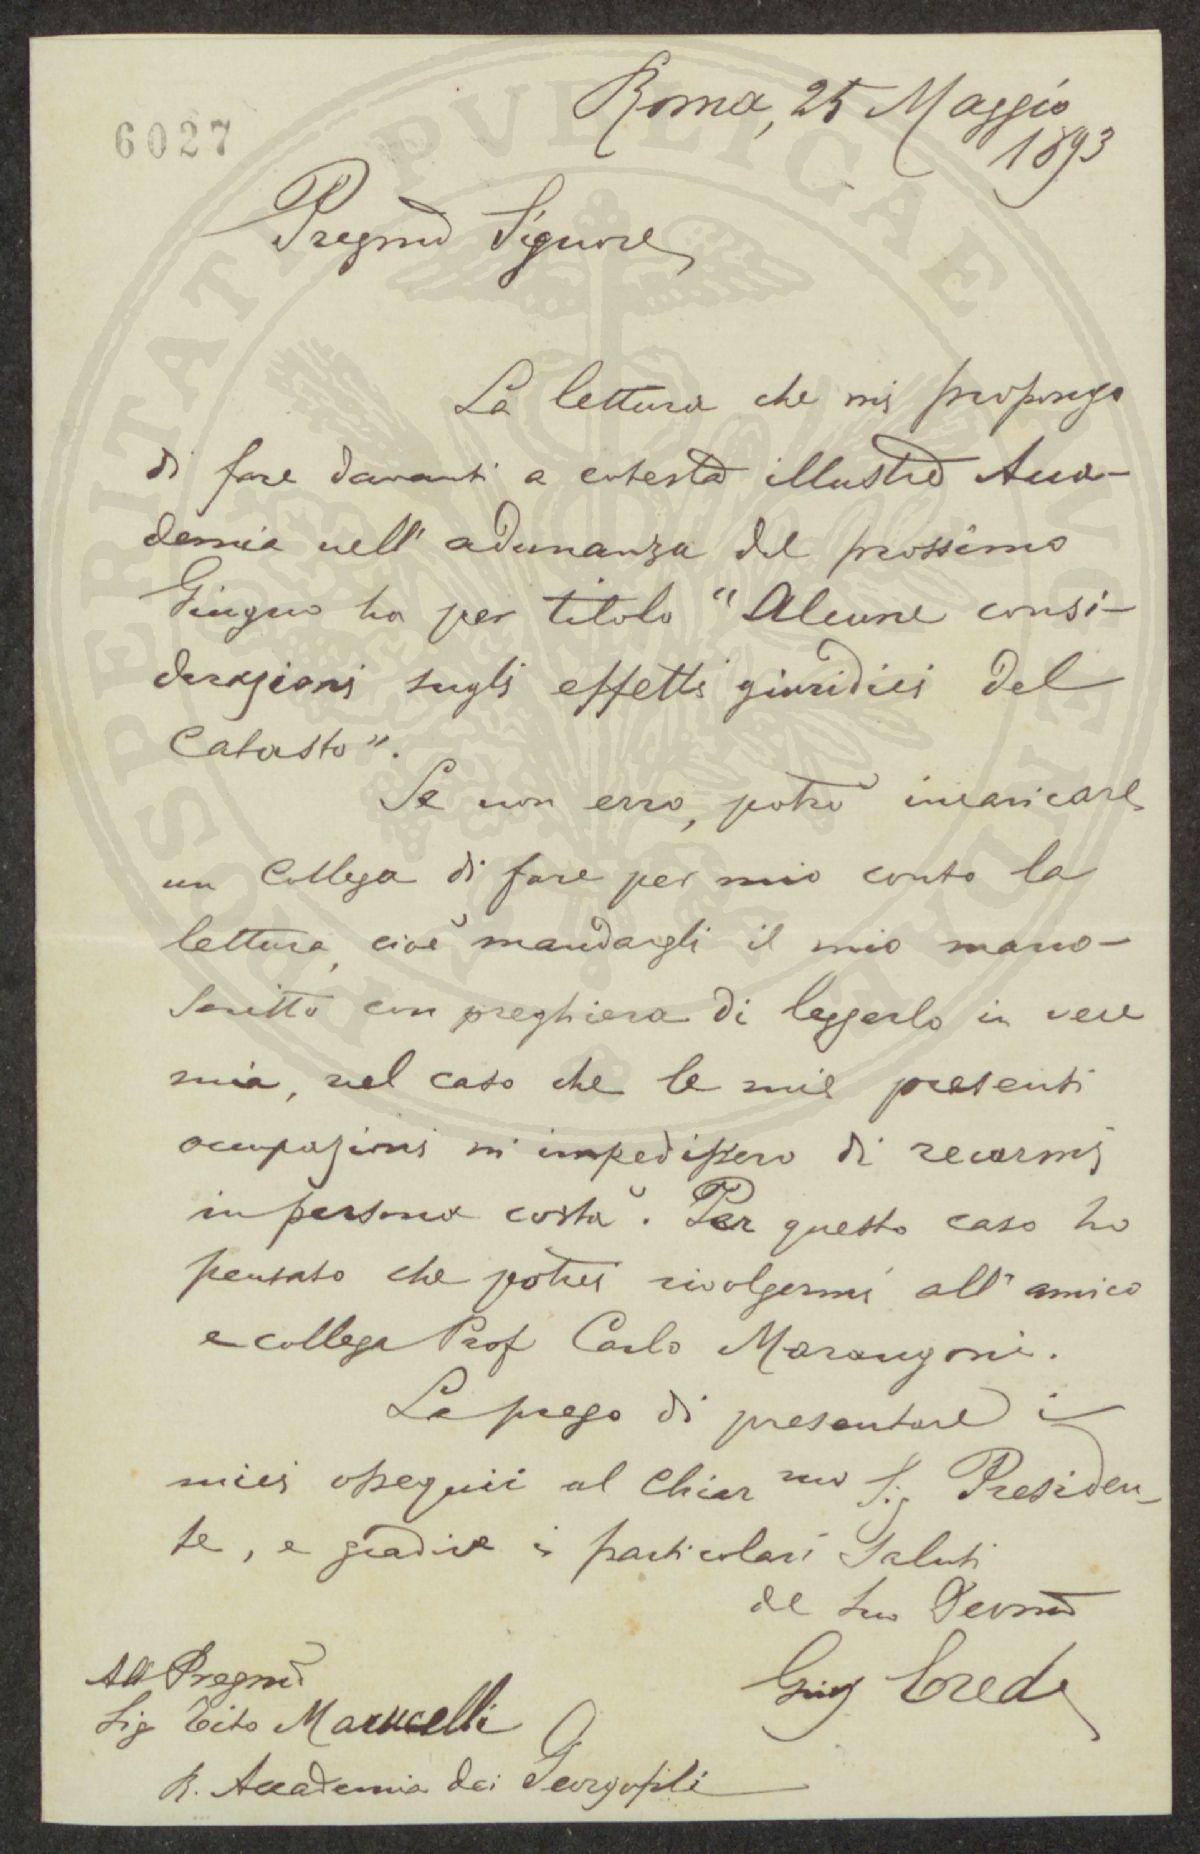 6027
Roma, 25 Maggio
1893
Pregmo Signore
La lettura che mi propongo
di fare davanti a cotesta illustre Acca-
demia nell' adunanza del prossimo
Giugno ha per titolo "Alcune consi-
derazioni sugli effetti giuridici del
Catasto".
Se non erro, potrò incaricare
un Collega di fare per mio conto la
lettura, cioè mandargli il mio mano-
scritto con preghiera di leggerlo in vece
mia, nel caso che le mie presenti
occupazioni m'impedissero di recarmi
in persona costà. Per questo caso ho
pensato che potrei rivolgermi all' amico
e collega Prof Carlo Marangoni.
La prego di presentare i
miei ossequii al Chiar mo Sig Presiden-
te, e gradire i particolari saluti
del suo Devmo
Giu Erede
All Pregmo
Sig Tito Marucelli
R. Accademia dei Georgofili
PROSPERITATI PVBLICAE